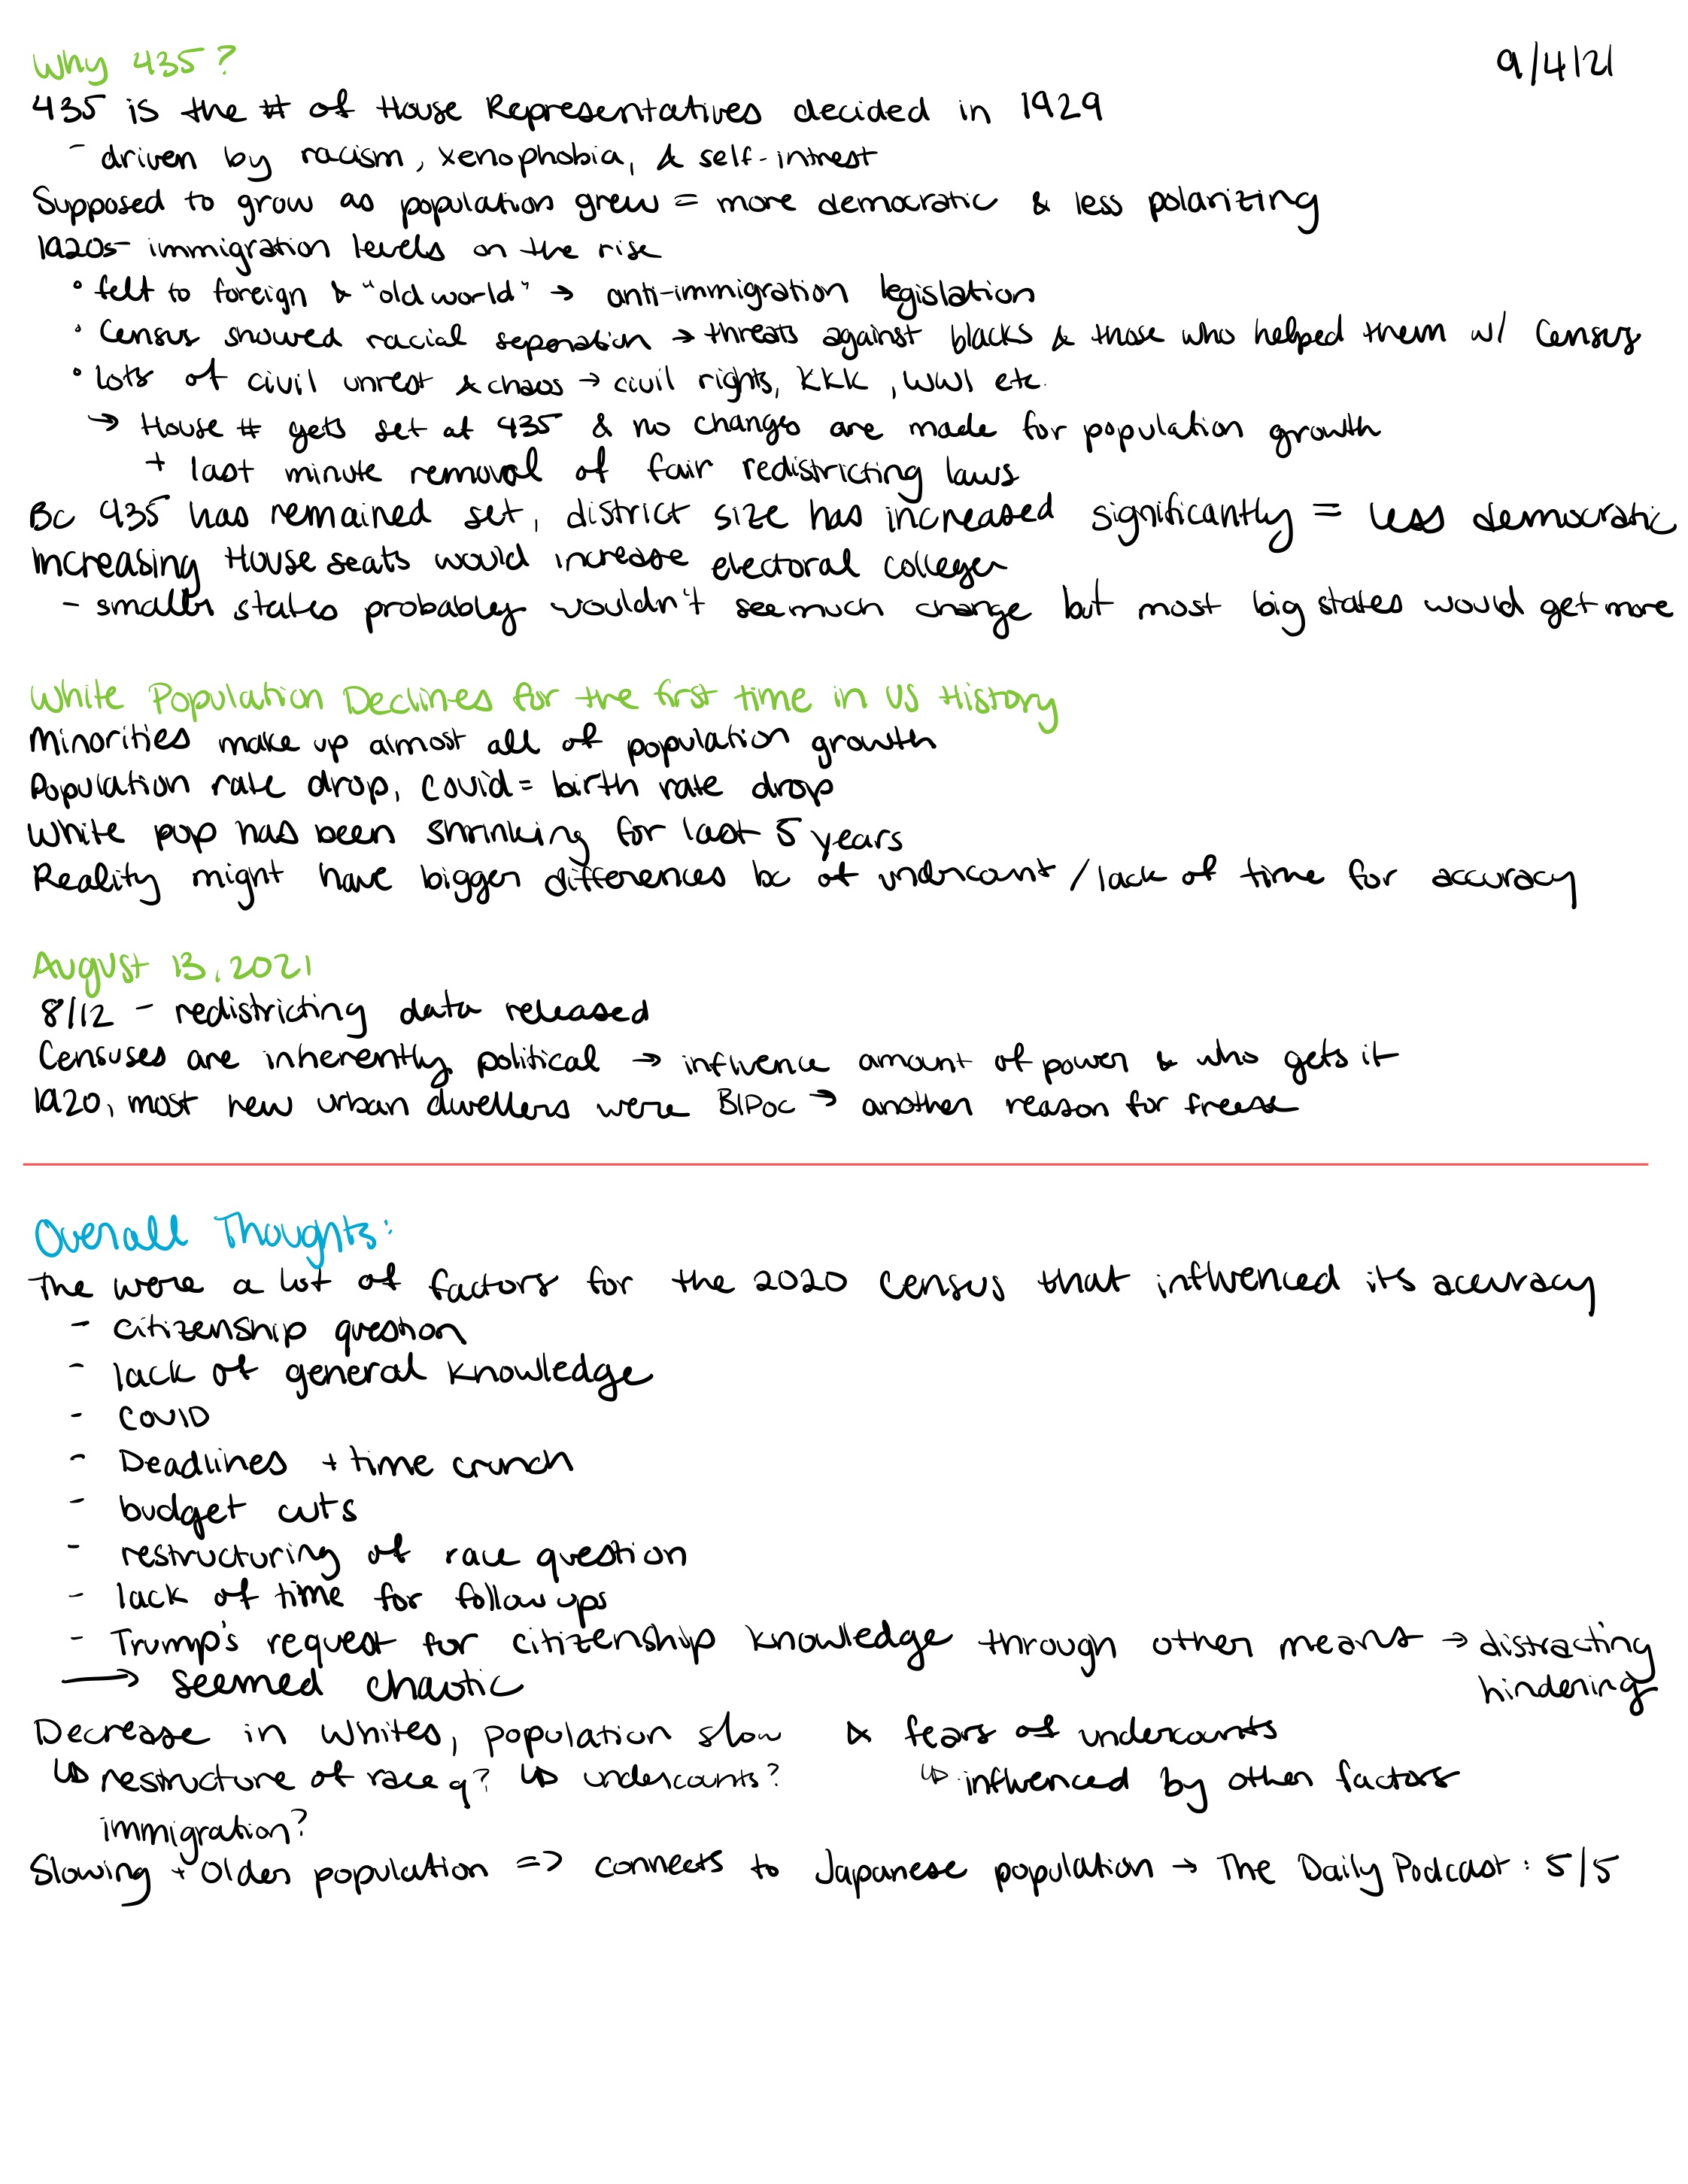 Why 435?
9/4/21
435 is the # of House Representatives decided in 1929
- driven by racism, xenophobia, & self-intrest
Supposed to grow as population grew = more democratic & less polarizing
1920s- immigration levels on the rise
• felt to foreign & "old world" → anti-immigration legislation
• Census showed racial seperation → threats against blacks & those who helped them w/ Census
• lots of civil unrest & chaos → civil rights, KKK, WW1 etc.
→ House # gets set at 435 & no changes are made for population growth
+ last minute removal of fair redistricting laws
Bc 435 has remained set, district size has increased significantly = less democratic
Increasing House seats would increase electoral college
- smaller states probably wouldn't see much change but most big states would get more
White Population Declines for the first time in US History
Minorities make up almost all of population growth
Population rate drop, Covid = birth rate drop
White pop has been shrinking for last 5 years
Reality might have bigger differences bc of undercount / lack of time for accuracy
August 13, 2021
8/12 - redistricting data released
Censuses are inherently political → influence amount of power & who gets it
1920, most new urban dwellers were BIPOC → another reason for freeze
Overall Thoughts:
The were a lot of factors for the 2020 Census that influenced its accuracy
- citizenship question
- lack of general knowledge
- COVID
- Deadlines + time crunch
- budget cuts
- restructuring of race question
- lack of time for follow ups
- Trump's request for citizenship knowledge through other means → distracting
hindering
→ seemed chaotic
Decrease in Whites, population slow & fears of undercounts
↳ restructure of race q? ↳ undercounts? ↳ influenced by other factors
immigration?
Slowing + Older population => connects to Japanese population → The Daily Podcast: 5/5